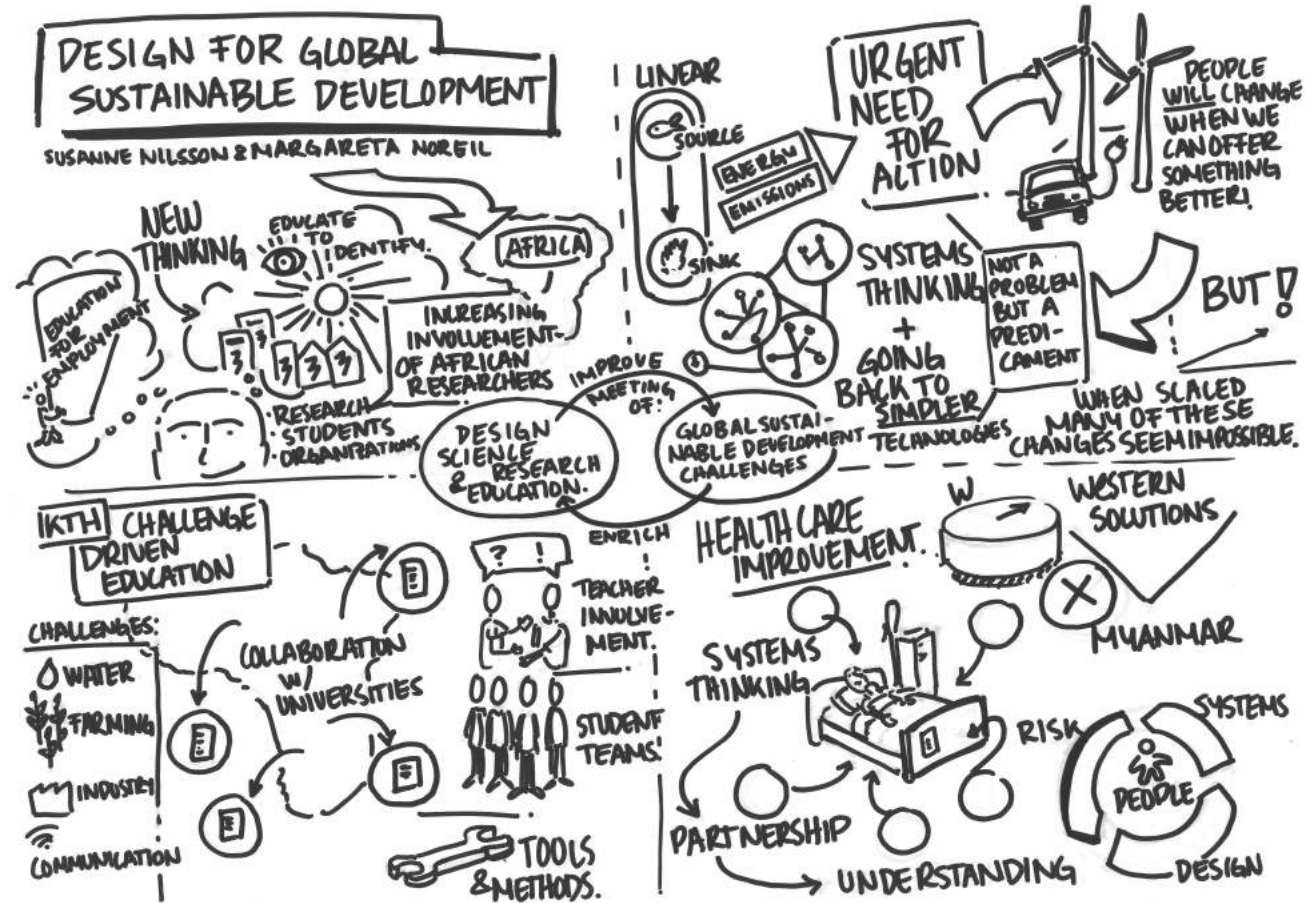 DESIGN FOR GLOBAL
SUSTAINABLE DEVELOPMENT
SUSANNE NILSSON & MARGARETA NOREIL
NEW
THINKING
EDUCATE
TO
IDENTIFY.
AFRICA
EDUCATION
FOR
EMPLOYMENT
INCREASING
INVOLVEMENT
OF AFRICAN
RESEARCHERS
· RESEARCH
· STUDENTS
· ORGANIZATIONS
LINEAR
SOURCE
SINK
ENERGY
EMISSIONS
URGENT
NEED
FOR
ACTION
PEOPLE
WILL CHANGE
WHEN WE
CAN OFFER
SOMETHING
BETTER!
SYSTEMS
THINKING
+
GOING
BACK TO
SIMPLER
TECHNOLOGIES
NOT A
PROBLEM
BUT A
PREDI-
CAMENT
BUT!
WHEN SCALED
MANY OF THESE
CHANGES SEEM IMPOSSIBLE.
IMPROVE
MEETING
OF:
DESIGN
SCIENCE
RESEARCH
& EDUCATION.
GLOBAL SUSTAI-
NABLE DEVELOPMENT
CHALLENGES
ENRICH
KTH
CHALLENGE
DRIVEN
EDUCATION
CHALLENGES:
WATER
FARMING
INDUSTRY
COMMUNICATION
COLLABORATION
W/
UNIVERSITIES
? !
TEACHER
INVOLVE-
MENT.
STUDENT
TEAMS.
TOOLS
& METHODS.
HEALTH CARE
IMPROVEMENT.
W
WESTERN
SOLUTIONS
MYANMAR
SYSTEMS
THINKING
PARTNERSHIP
UNDERSTANDING
RISK
SYSTEMS
PEOPLE
DESIGN